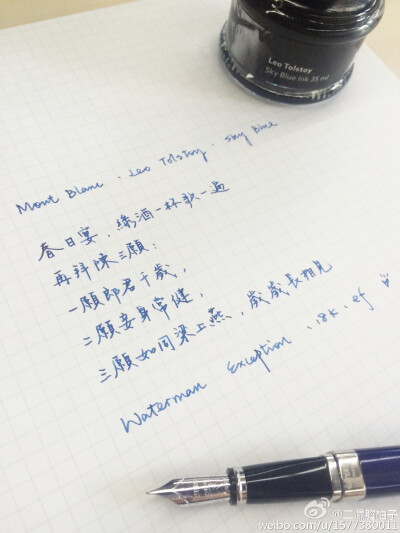 Leo Tolstoy
Sky Blue Ink 35 ml
Mont Blanc · Leo Tolstoy · Sky Blue
春日宴，綠酒一杯歌一遍
再拜陳三願：
一願郎君千歲，
二願妾身常健，
三願如同梁上燕，歲歲長相見
Waterman Exception · 18K · ef
@二師醉柚子
weibo.com/u/1577380011